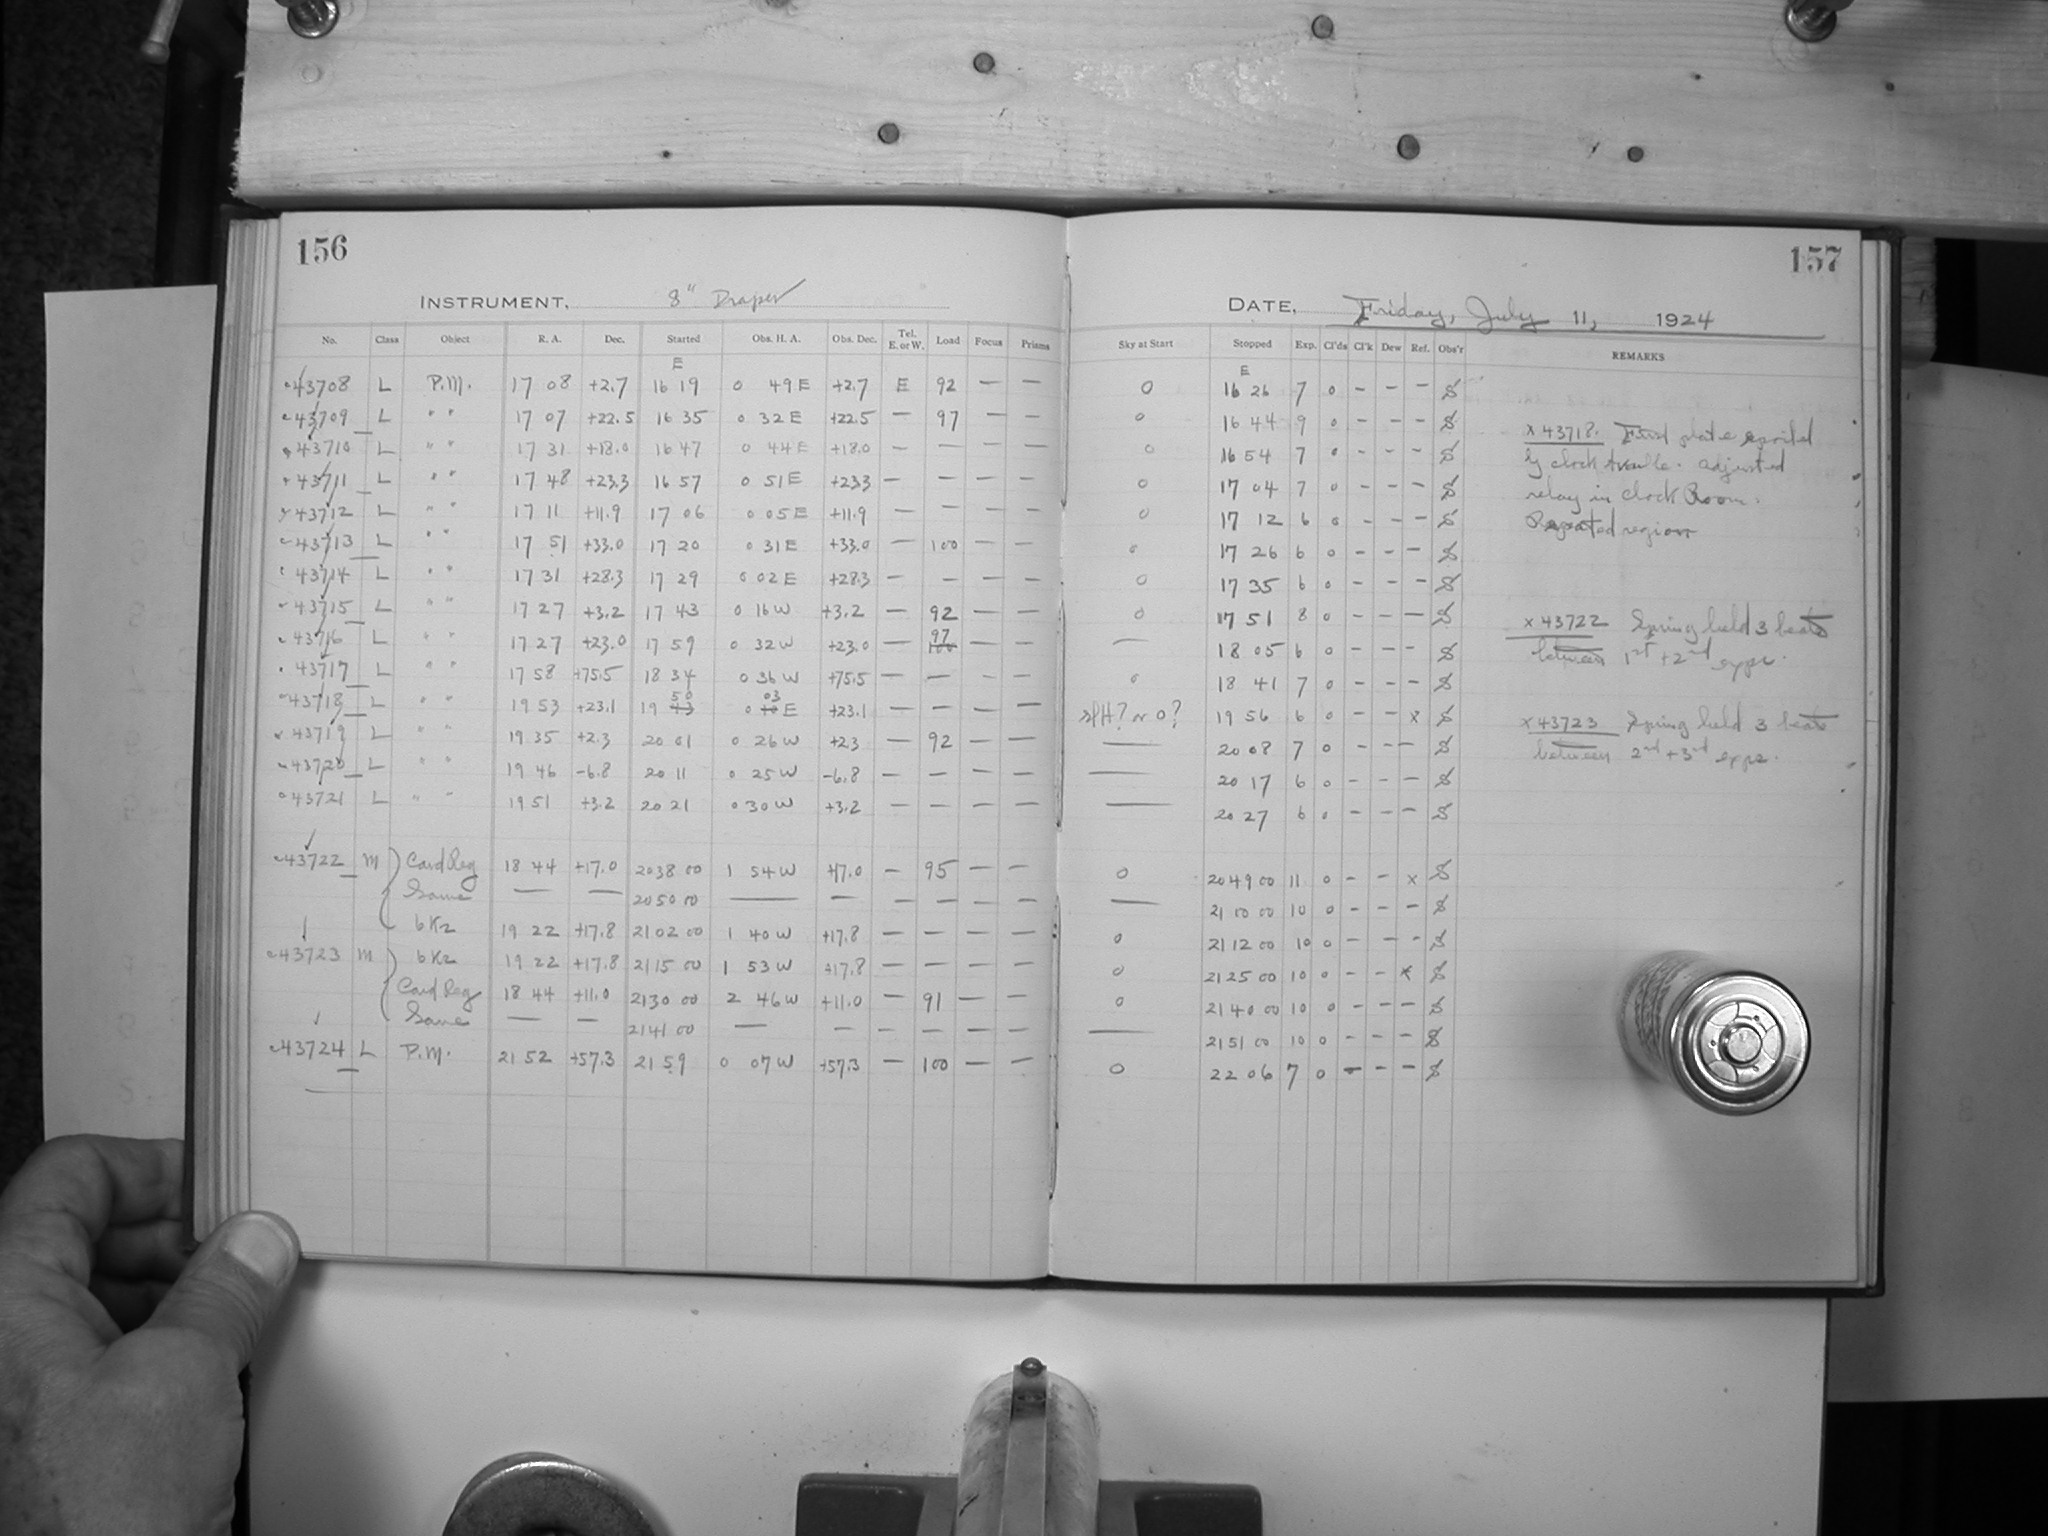 156
INSTRUMENT, 8" Draper
No. Class Object R. A. Dec. Started Obs. H. A. Obs. Dec. Tel. E. or W. Load Focus Prisms
E
43708 L P.M. 17 08 +2.7 16 19 0 49 E +2.7 E 92 — —
43709 L " " 17 07 +22.5 16 35 0 32 E +22.5 — 97 — —
43710 L " " 17 31 +18.0 16 47 0 44 E +18.0 — — — —
43711 L " " 17 48 +23.3 16 57 0 51 E +23.3 — — — —
43712 L " " 17 11 +11.9 17 06 0 05 E +11.9 — — — —
43713 L " " 17 51 +33.0 17 20 0 31 E +33.0 — 100 — —
43714 L " " 17 31 +28.3 17 29 0 02 E +28.3 — — — —
43715 L " " 17 27 +3.2 17 43 0 16 W +3.2 — 92 — —
43716 L " " 17 27 +23.0 17 59 0 32 W +23.0 — 97 100 — —
43717 L " " 17 58 +75.5 18 34 0 36 W +75.5 — — — —
43718 L " " 19 53 +23.1 19 50 43 0 03 10 E +23.1 — — — —
43719 L " " 19 35 +2.3 20 01 0 26 W +2.3 — 92 — —
43720 L " " 19 46 -6.8 20 11 0 25 W -6.8 — — — —
43721 L " " 19 51 +3.2 20 21 0 30 W +3.2 — — — —
43722 M Card Reg 18 44 +17.0 20 38 00 1 54 W +17.0 — 95 — —
Same — — 20 50 00 — — — — — —
6K2 19 22 +17.8 21 02 00 1 40 W +17.8 — — — —
43723 M 6K2 19 22 +17.8 21 15 00 1 53 W +17.8 — — — —
Card Reg 18 44 +11.0 21 30 00 2 46 W +11.0 — 91 — —
Same — — 21 41 00 — — — — — —
43724 L P.M. 21 52 +57.3 21 59 0 07 W +57.3 — 100 — —
157
DATE, Friday, July 11, 1924
Sky at Start Stopped Exp. Cl'ds Cl'k Dew Ref. Obs'r REMARKS
E
0 16 26 7 0 - - - S
0 16 44 9 0 - - - S
0 16 54 7 0 - - - S
0 17 04 7 0 - - - S
0 17 12 6 0 - - - S
0 17 26 6 0 - - - S
0 17 35 6 0 - - - S
0 17 51 8 0 - - - S
— 18 05 6 0 - - - S
0 18 41 7 0 - - - S
H? or 0? 19 56 6 0 - - x S
— 20 08 7 0 - - - S
— 20 17 6 0 - - - S
— 20 27 6 0 - - - S
0 20 49 00 11 0 - - x S
— 21 00 00 10 0 - - - S
0 21 12 00 10 0 - - - S
0 21 25 00 10 0 - - x S
0 21 40 00 10 0 - - - S
— 21 51 00 10 0 - - - S
0 22 06 7 0 - - - S
x 43718. First plate spoiled
by clock trouble. adjusted
relay in clock Room.
Repeated region
x 43722 Spring held 3 beats
between 1st + 2nd exps.
x 43723 Spring held 3 beats
between 2nd + 3rd exps.